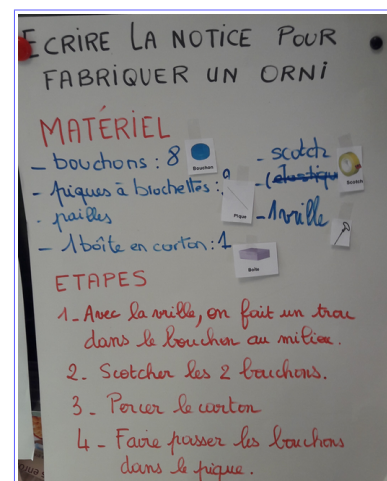 ECRIRE LA NOTICE POUR
FABRIQUER UN ORNI
MATÉRIEL
- bouchons : 8
Bouchon
- piques à brochettes : 9
Pique
- pailles
- 1 boîte en carton : 1
Boîte
- scotch
Scotch
- (élastique
- 1 vrille
ETAPES
1 - Avec la vrille, on fait un trou
dans le bouchon au milieu.
2 - Scotcher les 2 bouchons.
3 - Percer le carton
4 - Faire passer les bouchons
dans le pique.